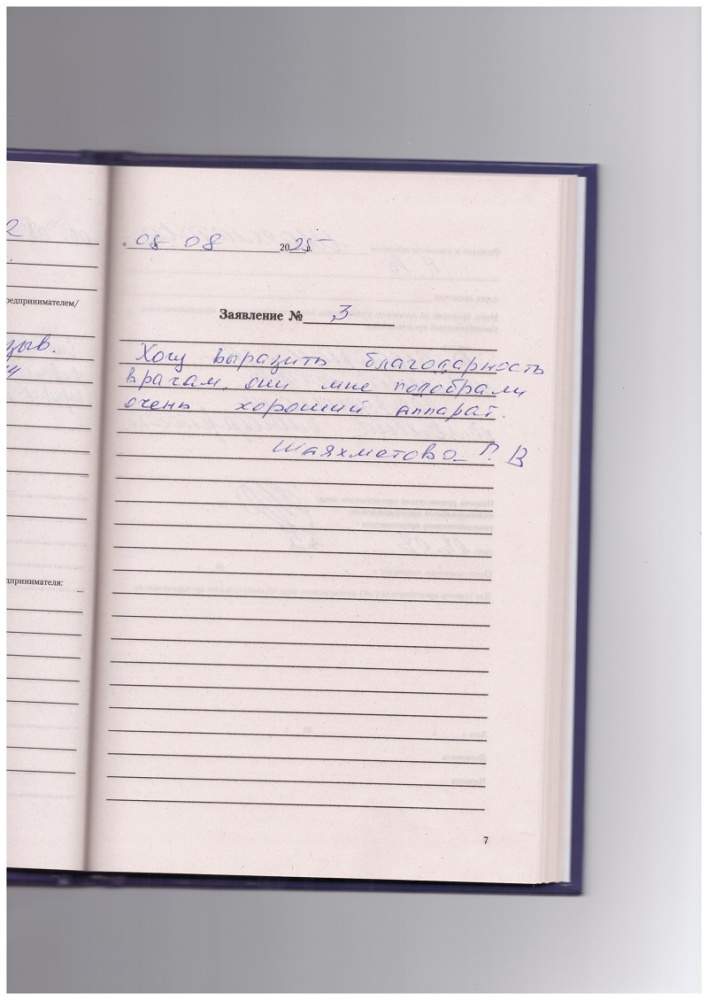 2
редпринимателем/
зыв.
дпринимателя:
08 08 2025 г.
Заявление № 3
Хочу выразить благодарность
врачам, они мне подобрали
очень хороший аппарат.
Шаяхметова Г. В
7